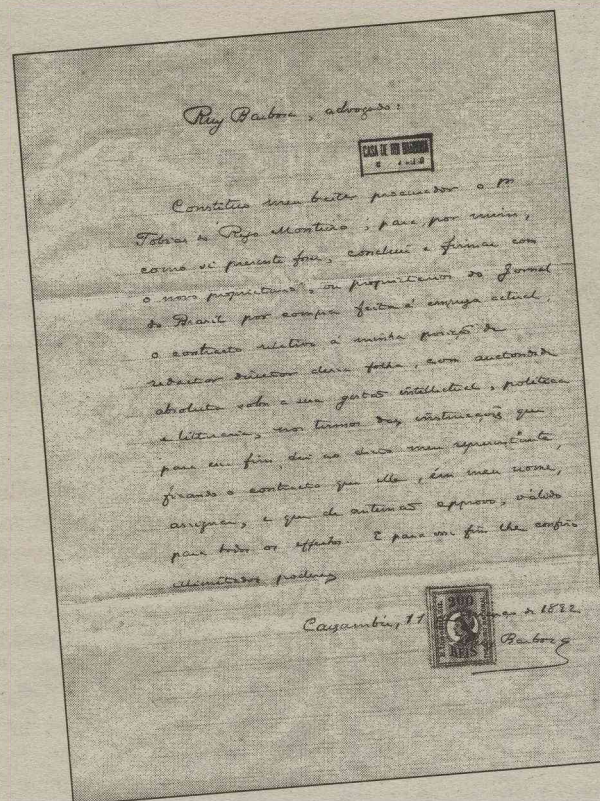 Ruy Barbosa, advogado:
CASA DE RUI BARBOSA
Constituo meu bastante procurador o Dr
Tobias do Rego Monteiro; para, por mim,
como si presente fora, concluir e firmar com
o novo proprietario, ou proprietarios do Jornal
do Brasil por compra feita á empreza actual,
o contracto relativo á minha posição de
redactor director dessa folha, com auctoridade
absoluta sobre a sua gestão intellectual, politica
e litteraria, nos termos das instrucções que
para esse fim dei ao dito meu representante,
ficando o contracto que elle, em meu nome,
assignar, e que de antemão approvo, válido
para todos os effeitos. E para esse fim lhe confiro
illimitados poderes
Caxambú, 11 de 1892
200
REIS
Ruy Barbosa